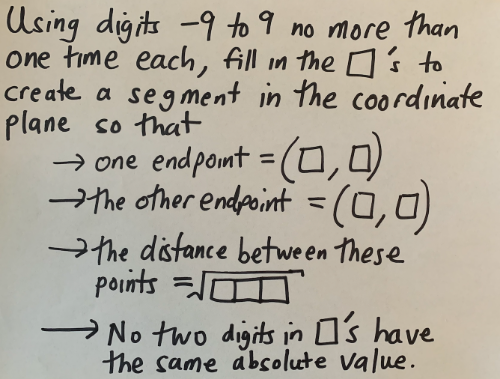 Using digits -9 to 9 no more than
one time each, fill in the □'s to
create a segment in the coordinate
plane so that
→ one endpoint = (□, □)
→ the other endpoint = (□, □)
→ the distance between these
points = √□□□
→ No two digits in □'s have
the same absolute value.